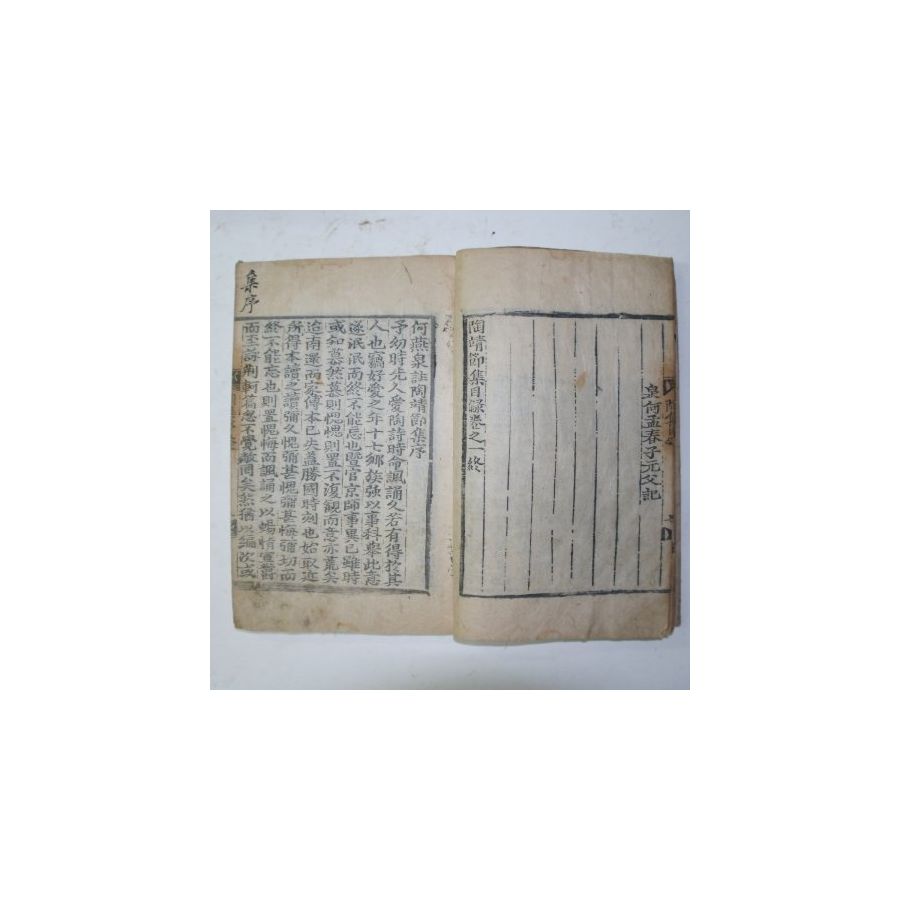 泉何孟春子元父記
陶靖節集目録卷之一終
集序
何燕泉註陶靖節集序
予幼時先人愛陶詩時命諷誦久若有得扵其
人也竊好愛之年十七鄉族強以事科舉此意
遂泯泯而終不能忘也曁官京師事異已雖時
或知慕然慕則愧愧則置不復觀而意亦荒矣
迨南還而家傳本已失蓋勝國時刻也始取近
所得本讀之讀彌久愧彌甚愧彌甚悔彌切而
終不能忘也則置愧悔而諷誦之以暢情
而至詠荊軻篇忽不覺敵同矣然猶以編次或